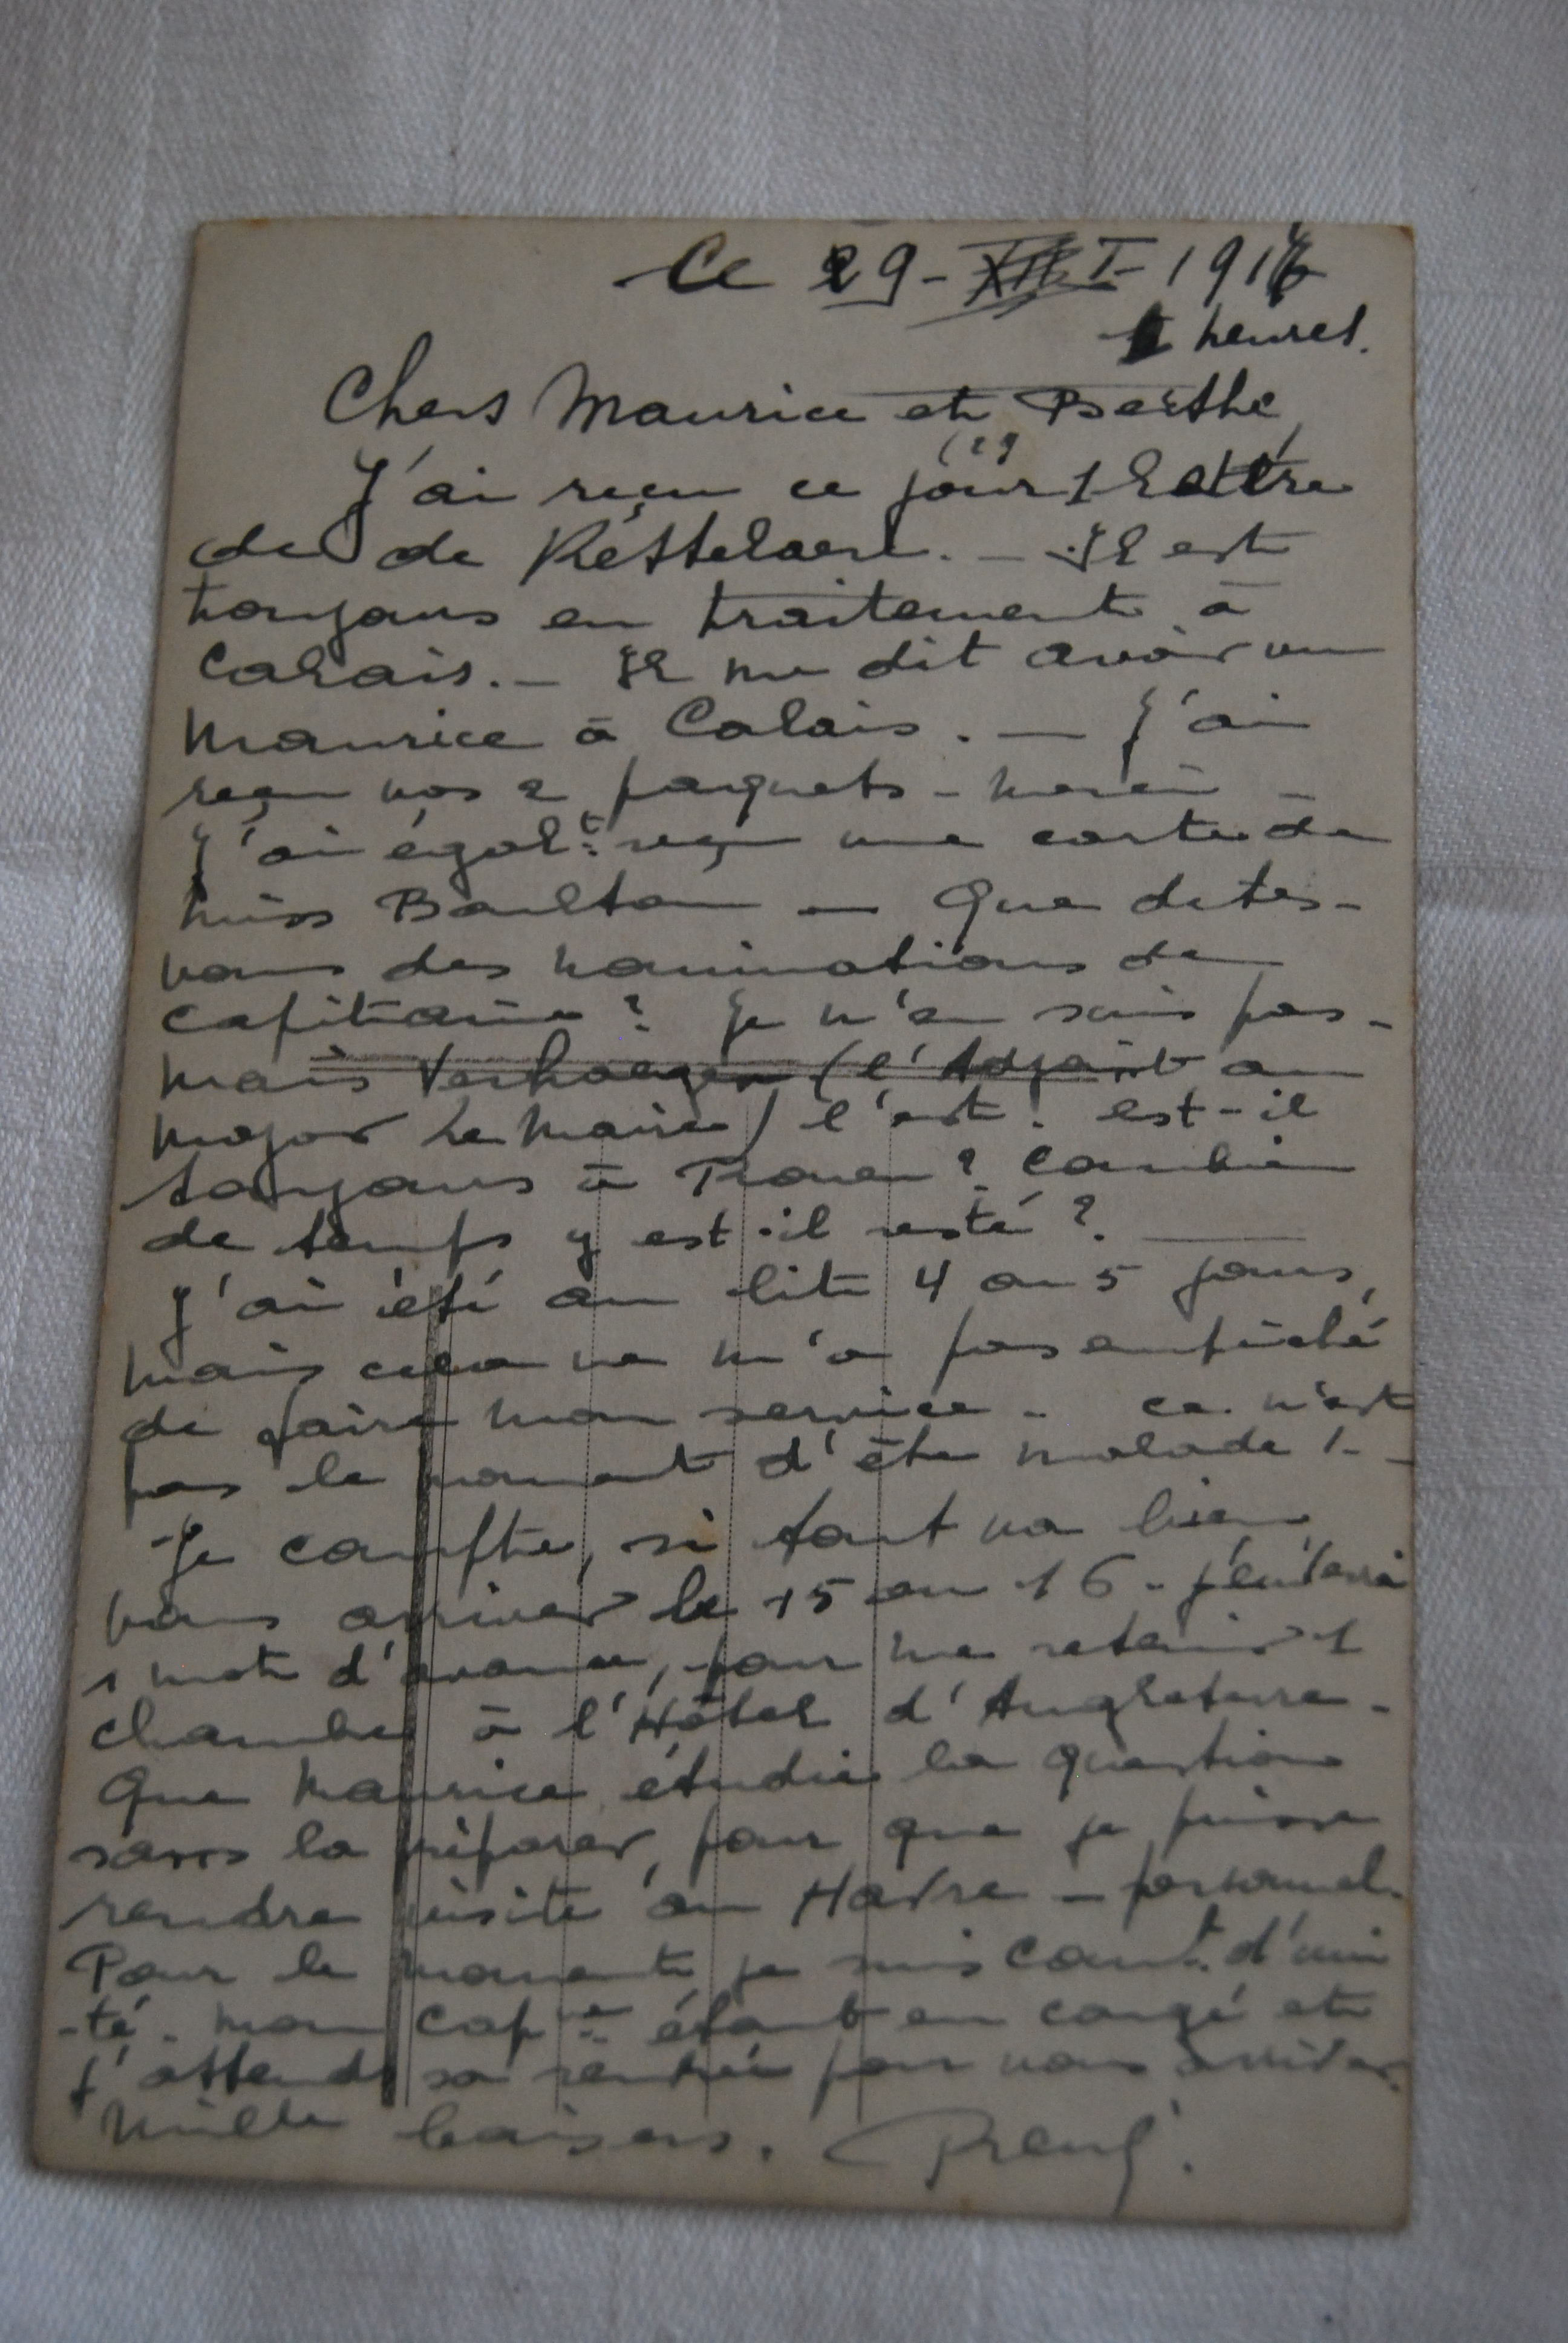 Ce 29 - I - 1917
heures.
Chers Maurice et Berthe,
(29
J'ai reçu ce jour 1 lettre
de de Kettelaere. - Il est
toujours en traitement à
Calais. - Il me dit avoir vu
Maurice à Calais. - J'ai
reçu vos 2 paquets - merci -
J'ai égalt reçu une carte de
Miss Boulton - Que dites-
vous des nominations de
capitaine ? Je n'en suis pas -
mais Verhaegen (l'Adjoint au
Major Lemaire) l'est. est-il
toujours à Rouen ? Combien
de temps y est-il resté ? -
J'ai été au lit 4 ou 5 jours,
mais cela ne m'a pas empêché
de faire mon service - ce n'est
pas le moment d'être malade ! -
Je compte, si tout va bien
vous arriver le 15 ou 16 - j'enverrai
1 mot d'avance, pour me retenir 1
chambre à l'Hôtel d'Angleterre -
Que Maurice étudie la question
sans la préparer, pour que je puisse
rendre visite au Havre - personnel.
Pour le moment je suis Comt d'uni
-té - mon Cap ne étant en congé et
j'attends sa rentrée pour vous arriver.
Mille baisers. René.